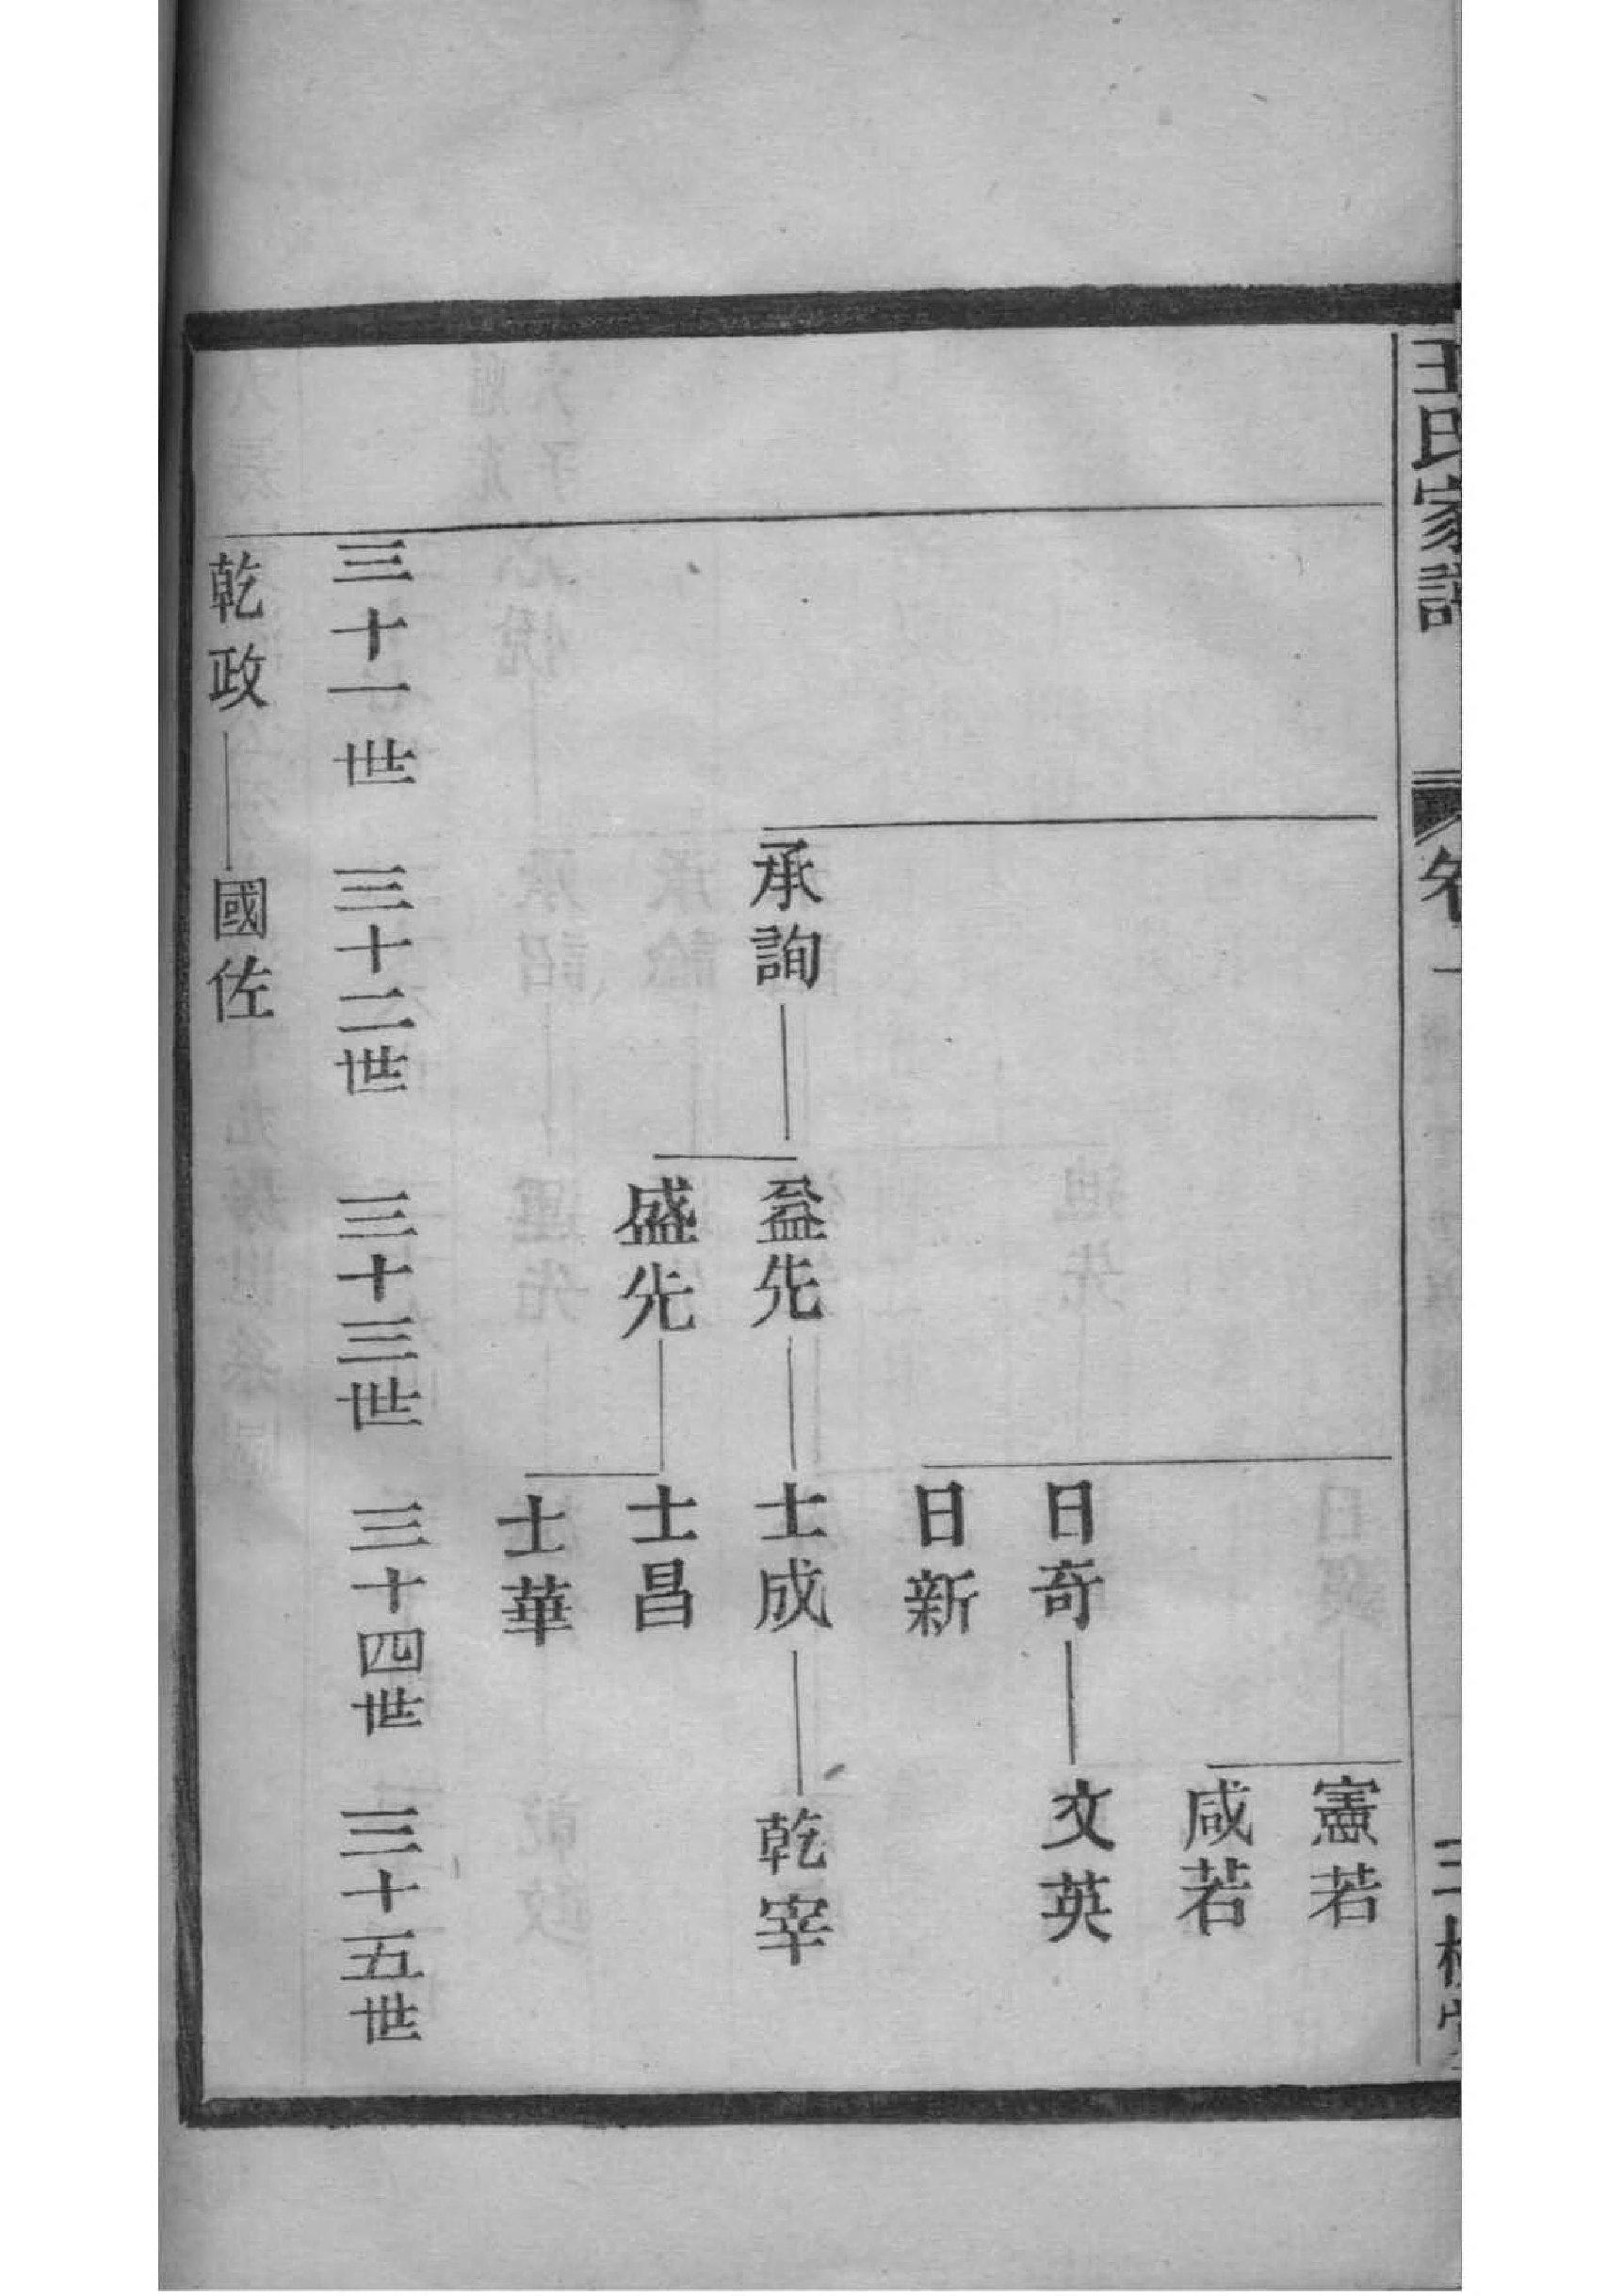 王氏家譜
卷一
三槐堂
憲若
咸若
日奇 文英
日新
承詢 益先 士成 乾宰
盛先 士昌
士華
三十一世 三十二世 三十三世 三十四世 三十五世
乾政 國佐